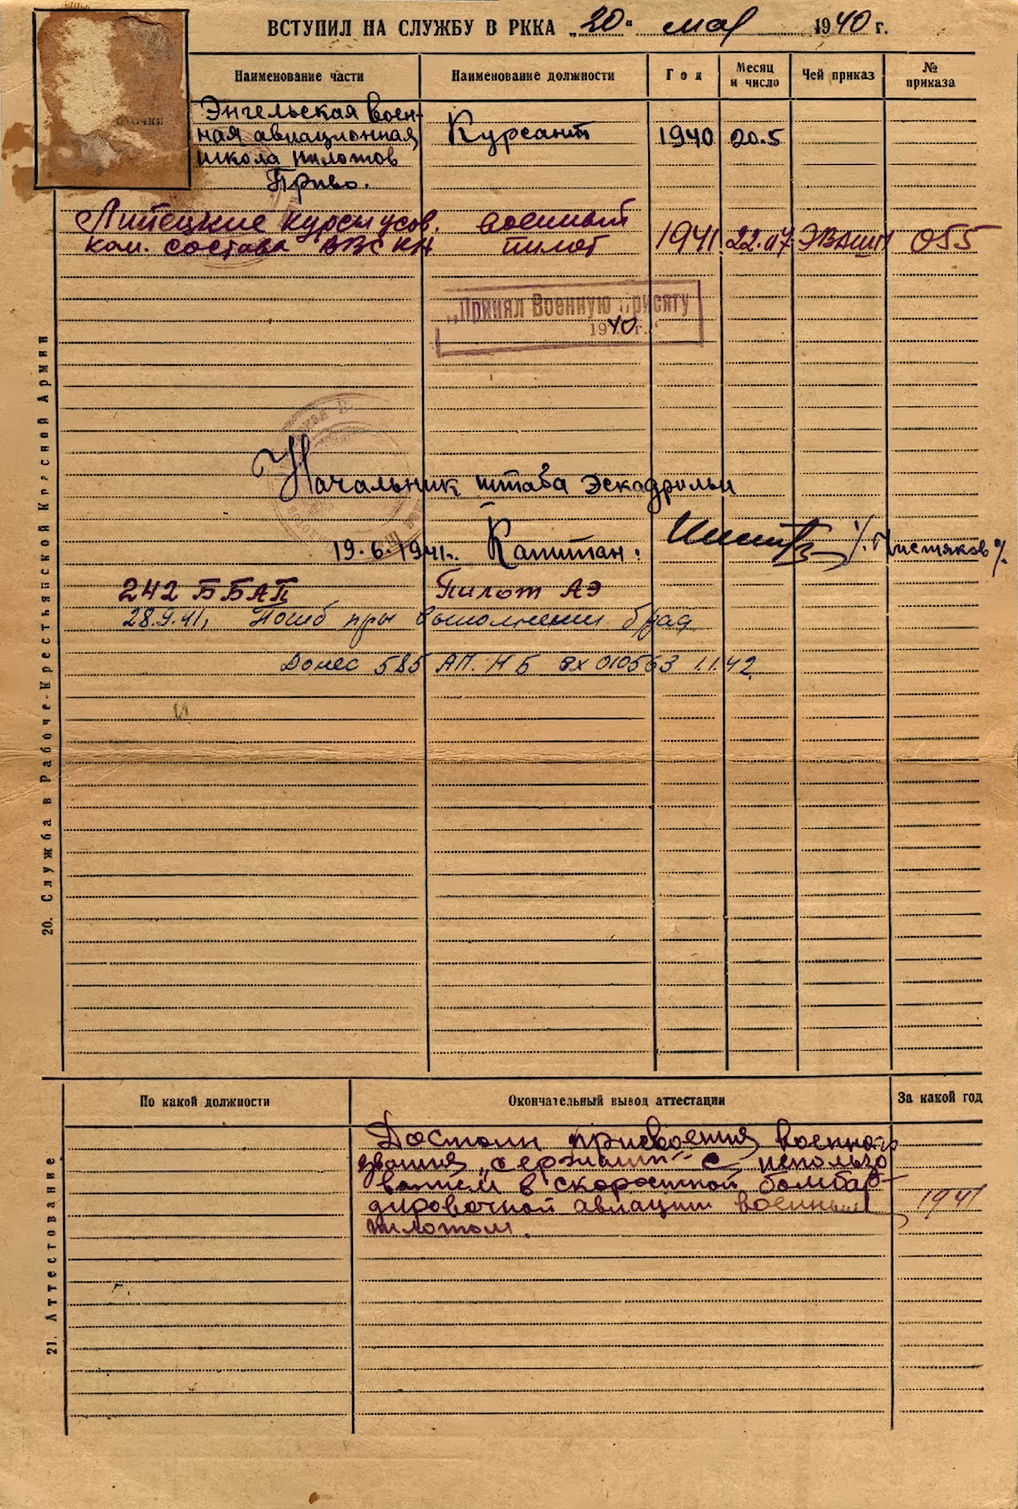 ВСТУПИЛ НА СЛУЖБУ В РККА „20“ мая 1940 г.
Наименование части Наименование должности Год Месяц и число Чей приказ № приказа
Энгельская воен-
ная авиационная Курсант 1940 20.5
школа пилотов
ПриВо.
Липецкие курсы усов. военный
ком. состава ВВС КА пилот 1941 22.07 ЭВАШП 055
„Принял Военную присягу
1940 г.“
Начальник штаба Эскадрильи
19.6.1941г. Капитан: /Чистяков/
242 ББАП Пилот АЭ
28.9.41, Погиб при выполнении б/зад
Донес 585 АП. НБ вх 010563 1.1.42.
20. Служба в Рабоче-Крестьянской Красной Армии
По какой должности Окончательный вывод аттестации За какой год
Достоин присвоения военного
звания „сержант“ с использо
ванием в скоростной бомбар-
дировочной авиации военным 1941
пилотом.
21. Аттестование